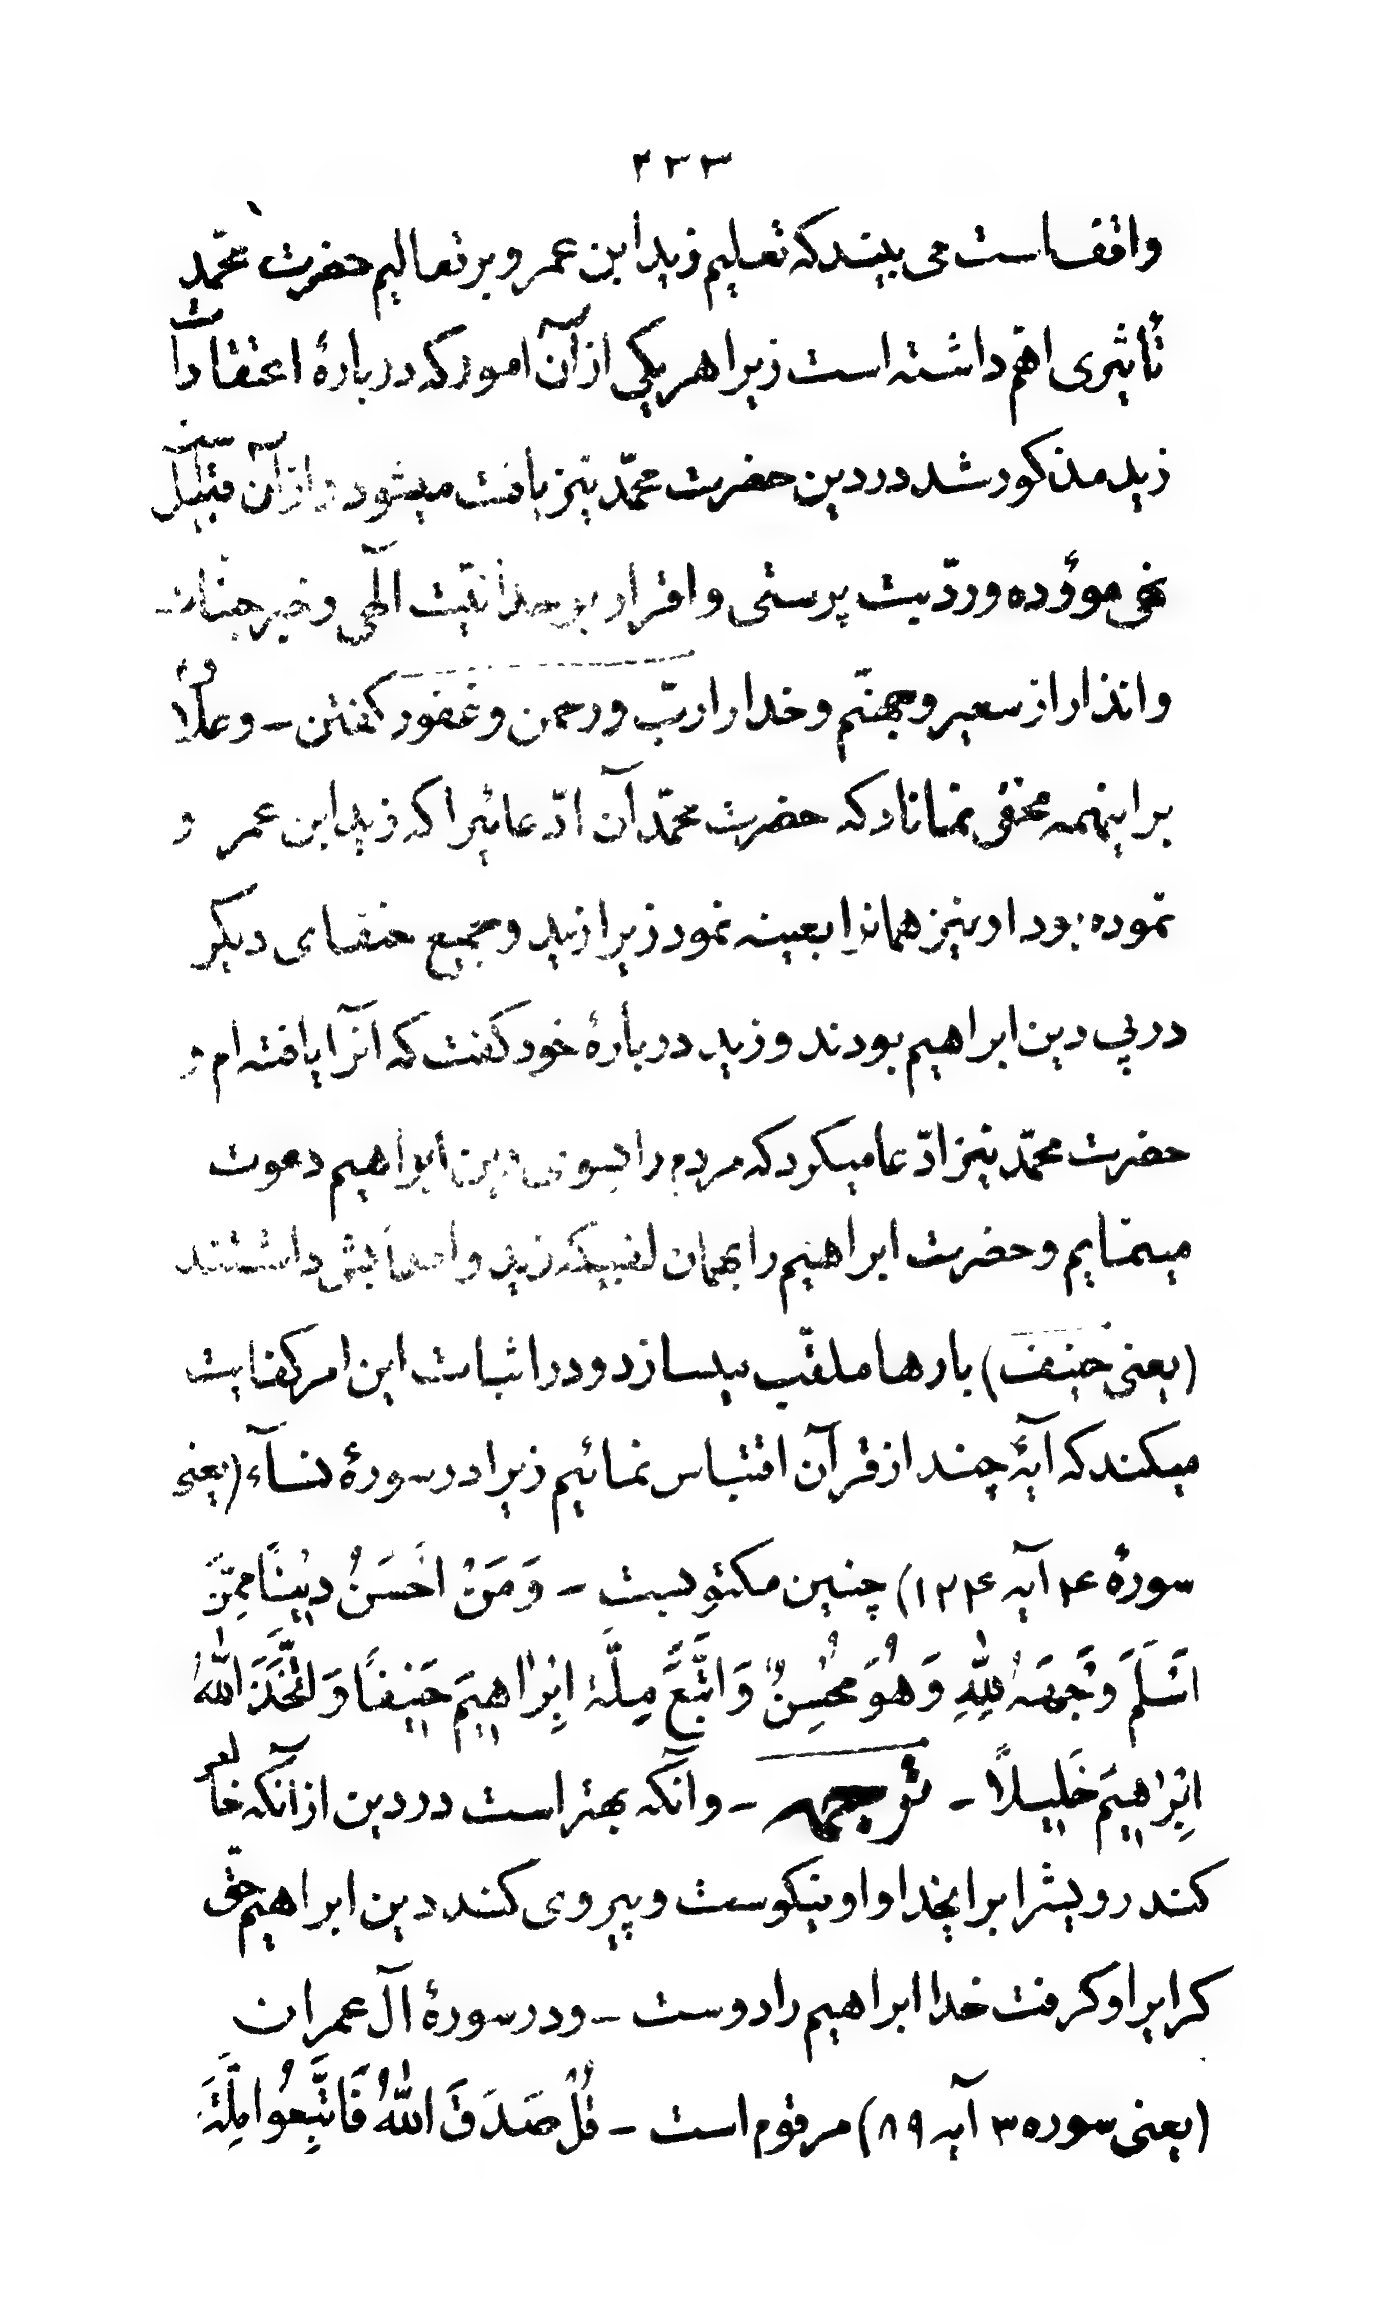 ۲۳۳
واقفست می بیند که تعلیم زید ابن عمرو بر تعالیم حضرت محمّد
تأثیری اهمّ داشته است زیرا هر یکی از آن امور که دربارهٔ اعتقادات
زید مذکور شد در دین حضرت محمّد نیز یافت میشود و از آن قبیل است
نهی موؤده و ردّ بت پرستی و اقرار بوحدانیّت الٓهی و خبر جنّات
و انذار از سعیر و جهنّم و خدا را ربّ و رحمن و غفور کفتن – و علاوه
بر اینهمه مخفی نماناد که حضرت محمّد آن ادّعائیرا که زید ابن عمرو
نموده بود او نیز همانرا بعینه نمود زیرا زید و جمیع حنفای دیکر
در پی دین ابراهیم بودند و زید دربارهٔ خود کفت که آنرا یافته ام و
حضرت محمّد نیز ادّعا میکرد که مردم را بسوی دین ابراهیم دعوت
مینمایم و حضرت ابراهیم را بهمان لقبیکه زید و اصدقایش داشتند
(یعنی حنیف) بارها ملقّب میسازد و در اثبات این امر کفایت
میکند که آیهٔ چند از قرآن اقتباس نمائیم زیرا در سورهٔ نسآء (یعنی
سورهٔ ۴ آیه ۱۲۴) چنین مکتوبست – وَمَنْ اَحْسَنُ دِیْنًا مِمَّنْ
اَسْلَمَ وَجْهَهُ لِلّٰهِ وَهُوَ مُحْسِنٌ وَاتَّبَعَ مِلَّةَ اِبْرٰاهِیمَ حَنِیفًا وَاتَّخَذَ اللّٰهُ
اِبْرٰاهِیمَ خَلِیلًا – ترجمه – و آنکه بهتر است در دین از آنکه خالص
کند رویشرا برای خدا و او نیکوست و پیروی کند دین ابراهیم حقّ
کرا برا و کرفت خدا ابراهیم را دوست – و در سورهٔ آل عمران
(یعنی سوره ۳ آیه ۸۹) مرقوم است – قُلْ صَدَقَ اللّٰهُ فَاتَّبِعُوا مِلَّةَ